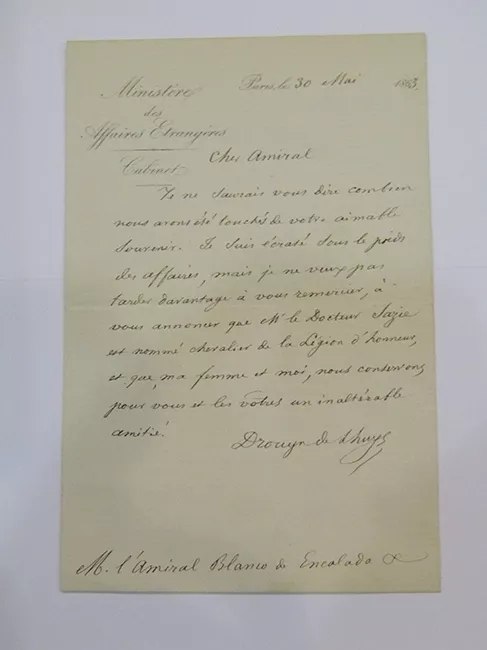 Ministère Paris, le 30 Mai 1863.
des
Affaires Etrangères
Cabinet
Cher Amiral
Je ne saurais vous dire combien
nous avons été touchés de votre aimable
souvenir. Je suis écrasé sous le poids
des affaires, mais je ne veux pas
tarder davantage à vous remercier, à
vous annoncer que Mr le Docteur Sazie
est nommé chevalier de la Légion d'honneur,
et que, ma femme et moi, nous conservons
pour vous et les vôtres un inaltérable
amitié.
Drouyn de Lhuys
M. l'Amiral Blanco de Encalada